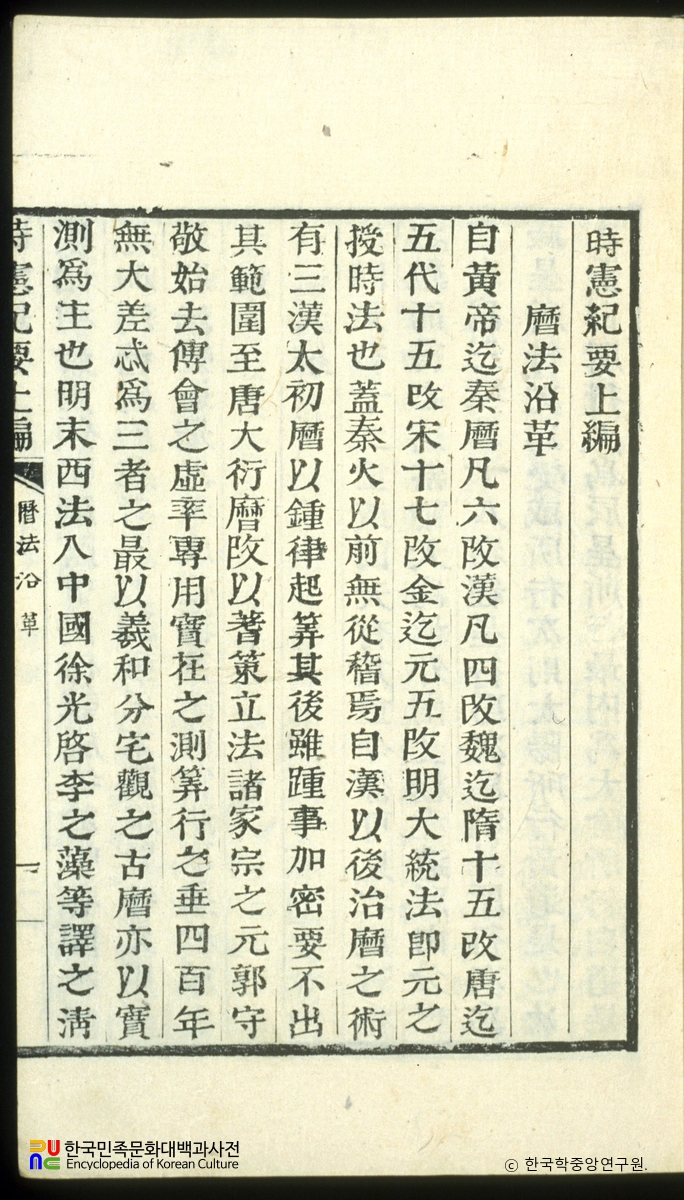 時憲紀要上編
曆法沿革
自黃帝迄秦曆凡六改漢凡四改魏迄隋十五改唐迄
五代十五改宋十七改金迄元五改明大統法卽元之
授時法也蓋秦火以前無從稽焉自漢以後治曆之術
有三漢太初曆以鍾律起筭其後雖踵事加密要不出
其範圍至唐大衍曆改以蓍策立法諸家宗之元郭守
敬始去傅會之虛率專用實在之測筭行之垂四百年
無大差忒爲三者之最以羲和分宅觀之古曆亦以實
測爲主也明末西法入中國徐光啓李之藻等譯之淸
時憲紀要上編
曆法沿革
一
한국민족문화대백과사전
Encyclopedia of Korean Culture
© 한국학중앙연구원.